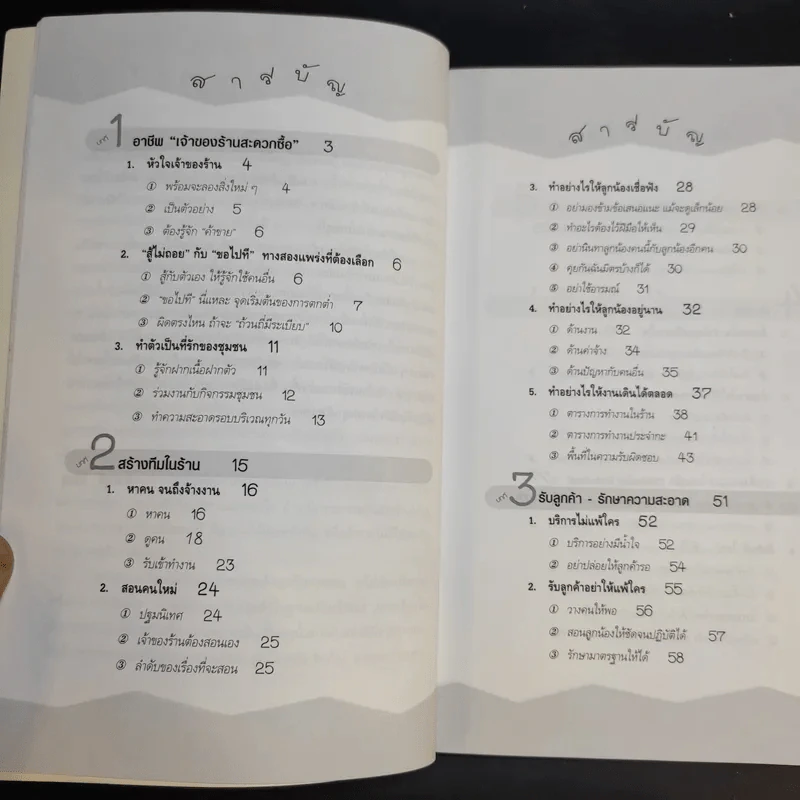 สารบัญ
บทที่ 1 อาชีพ “เจ้าของร้านสะดวกซื้อ” 3
1. หัวใจเจ้าของร้าน 4
① พร้อมจะลองสิ่งใหม่ ๆ 4
② เป็นตัวอย่าง 5
③ ต้องรู้จัก “ค้าขาย” 6
2. “สู้ไม่ถอย” กับ “ขอไปที” ทางสองแพร่งที่ต้องเลือก 6
① สู้กับตัวเอง ให้รู้จักใช้คนอื่น 6
② “ขอไปที” นี่แหละ จุดเริ่มต้นของการตกต่ำ 7
③ ผิดตรงไหน ถ้าจะ “ถ้วนถี่มีระเบียบ” 10
3. ทำตัวเป็นที่รักของชุมชน 11
① รู้จักฝากเนื้อฝากตัว 11
② ร่วมงานกับกิจกรรมชุมชน 12
③ ทำความสะอาดรอบบริเวณทุกวัน 13
บทที่ 2 สร้างทีมในร้าน 15
1. หาคน จนถึงจ้างงาน 16
① หาคน 16
② ดูคน 18
③ รับเข้าทำงาน 23
2. สอนคนใหม่ 24
① ปฐมนิเทศ 24
② เจ้าของร้านต้องสอนเอง 25
③ ลำดับของเรื่องที่จะสอน 25
สารบัญ
3. ทำอย่างไรให้ลูกน้องเชื่อฟัง 28
① อย่ามองข้ามข้อเสนอแนะ แม้จะดูเล็กน้อย 28
② ทำอะไรต้องไว้ฝีมือให้เห็น 29
③ อย่านินทาลูกน้องคนนี้กับลูกน้องอีกคน 30
④ คุยกันฉันมิตรบ้างก็ได้ 30
⑤ อย่าใช้อารมณ์ 31
4. ทำอย่างไรให้ลูกน้องอยู่นาน 32
① ด้านงาน 32
② ด้านค่าจ้าง 34
③ ด้านปัญหากับคนอื่น 35
5. ทำอย่างไรให้งานเดินได้ตลอด 37
① ตารางการทำงานในร้าน 38
② ตารางการทำงานประจำกะ 41
③ พื้นที่ในความรับผิดชอบ 43
บทที่ 3 รับลูกค้า - รักษาความสะอาด 51
1. บริการไม่แพ้ใคร 52
① บริการอย่างมีน้ำใจ 52
② อย่าปล่อยให้ลูกค้ารอ 54
2. รับลูกค้าอย่าให้แพ้ใคร 55
① วางคนให้พอ 56
② สอนลูกน้องให้ชัดจนปฏิบัติได้ 57
③ รักษามาตรฐานให้ได้ 58